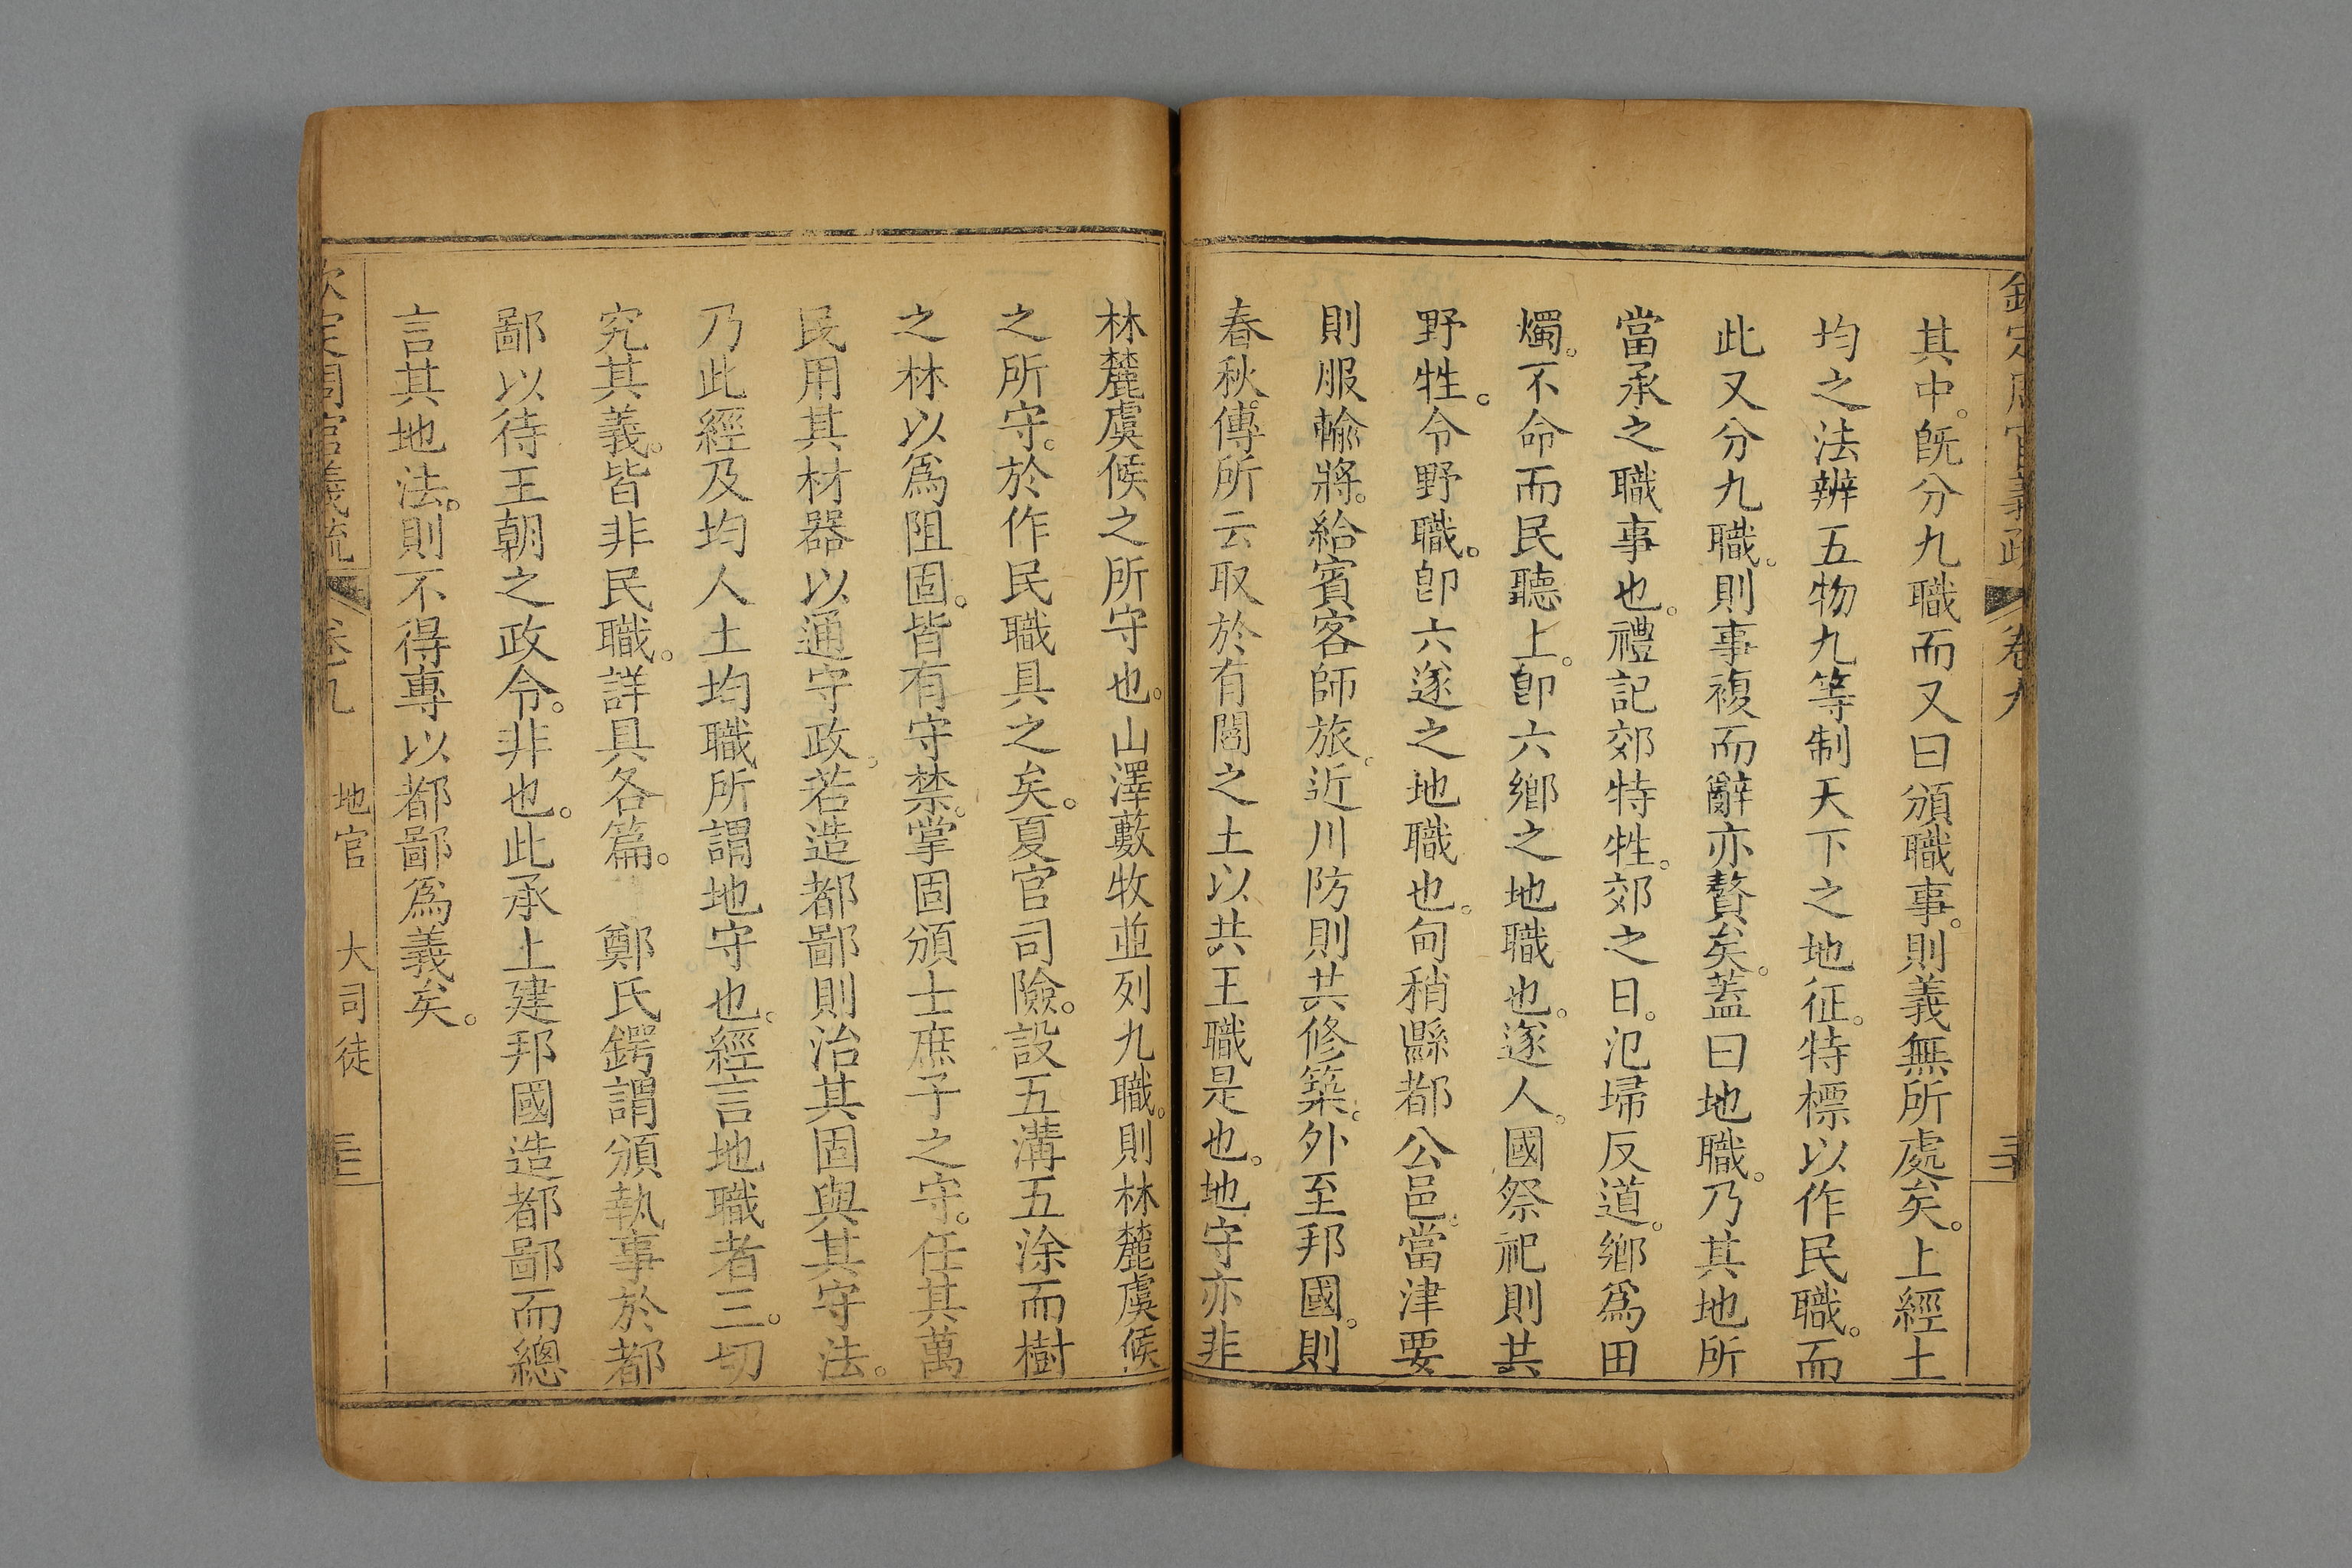 欽定周官義疏 卷九
其中。旣分九職而又曰頒職事。則義無所處矣。上經土
均之法辨五物九等制天下之地征。特標以作民職。而
此又分九職。則事複而辭亦贅矣。蓋曰地職。乃其地所
當承之職事也。禮記郊特牲。郊之日。氾埽反道。鄉爲田
燭。不命而民聽上。卽六鄉之地職也。遂人。國祭祀則共
野牲。令野職。卽六遂之地職也。甸稍縣都公邑。當津要
則服輸將。給賓客師旅。近川防則共修築。外至邦國。則
春秋。傳所云取於有閻之土以共王職是也。地守亦非
林麓虞候之所守也。山澤藪牧並列九職。則林麓虞候
之所守。於作民職具之矣。夏官司險。設五溝五涂而樹
之林以爲阻固。皆有守禁。掌固頒士庶子之守。任其萬
民用其材器以通守政。若造都鄙則治其固與其守法。
乃此經及均人土均職所謂地守也。經言地職者三。切
究其義。皆非民職。詳具各篇。 鄭氏鍔謂頒執事於都
鄙以待王朝之政令。非也。此承上建邦國造都鄙而總
言其地法。則不得專以都鄙爲義矣。
欽定周官義疏 卷九 地官 大司徒